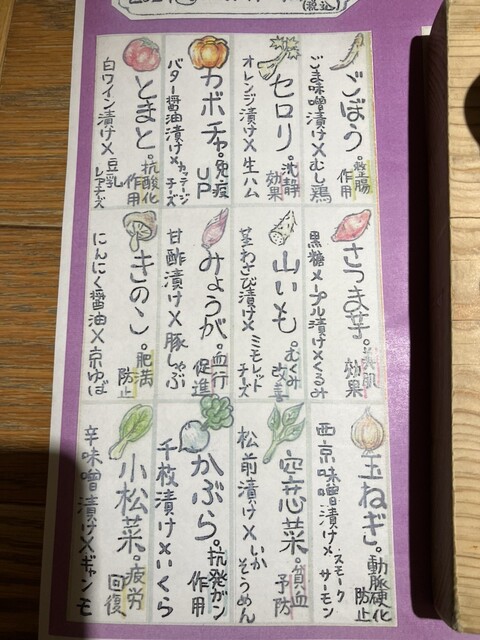 (税込)
ごぼう。整腸作用
ごま味噌漬け×むし鶏
セロリ。沈静効果
オレンジ漬け×生ハム
カボチャ。免疫UP
バター醤油漬け×カッテージチーズ
とまと。抗酸化作用
白ワイン漬け×豆乳レアチーズ
さつま芋。美肌効果
黒糖メープル漬け×くるみ
山いも。むくみ改善
茎わさび漬け×ミモレットチーズ
みょうが。血行促進
甘酢漬け×豚しゃぶ
きのこ。肥満防止
にんにく醤油×京ゆば
玉ねぎ。動脈硬化防止
西京味噌漬け×スモークサーモン
空芯菜。貧血予防
松前漬け×いかそうめん
かぶら。抗発ガン作用
千枚漬け×いくら
小松菜。疲労回復
辛味噌漬け×ギャンモ